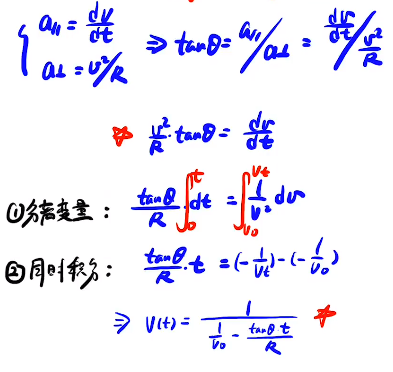 { a∥ = dv/dt
a⊥ = v²/R ⇒ tanθ = a∥/a⊥ = dv/dt / v²/R
☆ v²/R · tanθ = dv/dt
①分离变量: tanθ/R ∫₀ᵗ dt = ∫_{v₀}^{vt} 1/v² dv
②同时积分: tanθ/R · t = (-1/vt) - (-1/v₀)
⇒ v(t) = 1/(1/v₀ - tanθ·t/R) ☆